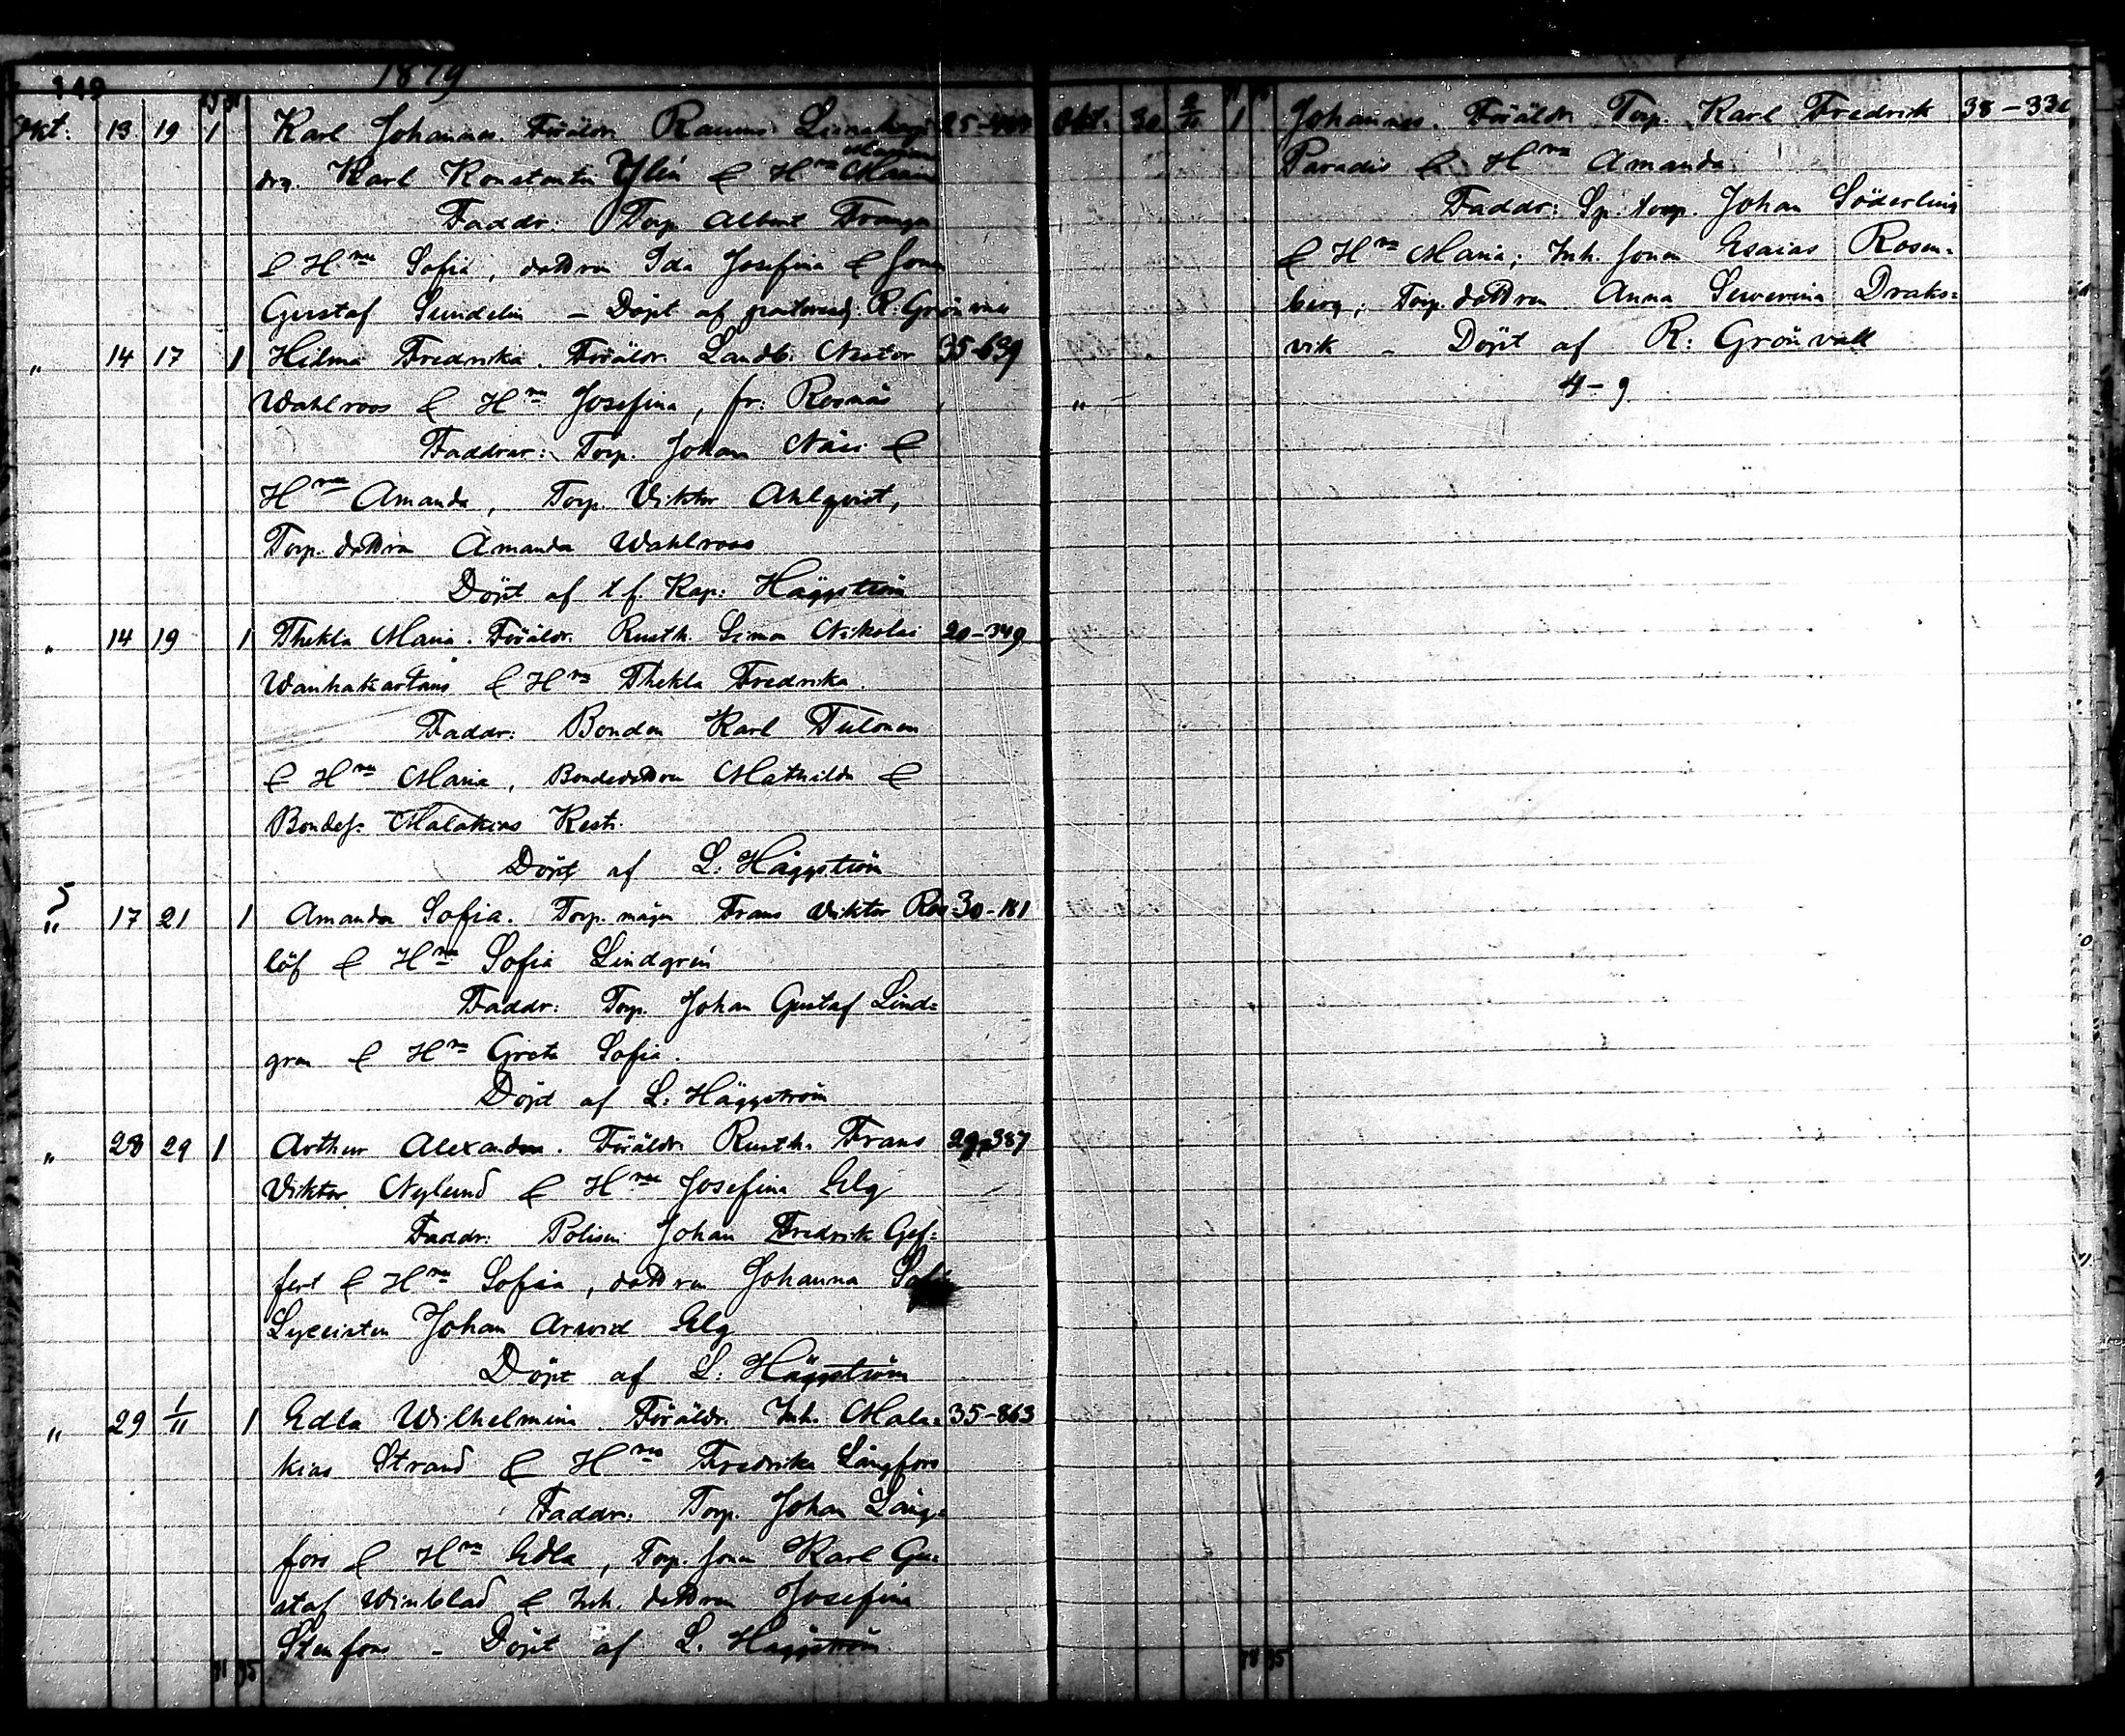 149 1879
Okt. 13 19 1 Karl Johannes. Föräldr. Raumo 25-
drg. Karl Konstantin Ylén & H<sup>ru</sup> Maria
Faddr: Torp. Albert
& H<sup>ru</sup> Sofia, dottren Ida Josefina & sonen
Gustaf Sundelin – Döpt af R. Grönvall
" 14 17 1 Hilma Fredrika. Föräldr. Landb. Nestor 35-639
Wahlroos & H<sup>ru</sup> Josefina, fr: Rosnäs
Faddrar: Torp. Johan Näsi &
H<sup>ru</sup> Amanda, Torp. Viktor Ahlqvist,
Torp. dottren Amanda Wahlroos
Döpt af t.f. Kap: Häggström
" 14 19 1 Thekla Maria. Föräldr. Rusth. Simon Nikolai 20-349
Wanhakartano & H<sup>ru</sup> Thekla Fredrika.
Faddr: Bonden Karl Tulonen
& H<sup>ru</sup> Maria, Bondedottren Mathilda &
Bondes. Malakias Kesti.
Döpt af L. Häggström
5
" 17 21 1 Amanda Sofia. Torp. mågen Frans Viktor Ros 30-181
löf & H<sup>ru</sup> Sofia Lindgrén
Faddr: Torp. Johan Gustaf Lind=
gren & H<sup>ru</sup> Greta Sofia.
Döpt af L. Häggström
" 28 29 1 Arthur Alexander. Föräldr. Rusth. Frans 387
Viktor Nylund & H<sup>ru</sup> Josefina Elg
Faddr: Polisen Johan Fredrik Gef=
fert & H<sup>ru</sup> Sofia, dottren Johanna Sofia
Lyceisten Johan Arvid Elg
Döpt af L. Häggström
" 29 1/11 1 Edla Wilhelmina. Föräldr. Inh. Mala= 35-863
kias Strand & H<sup>ru</sup> Fredrika Långfors
Faddr. Torp. Johan Lång=
fors & H<sup>ru</sup> Edla, Torp. sonen Karl Gu=
staf Winblad & Inh. dottren Josefina
Stenfors – Döpt af L. Häggström
Okt. 30 2/11 1 Johannes. Föräldr. Torp. Karl Fredrik 38-
Paradis & H<sup>ru</sup> Amanda.
Faddr: Sp. torp. Johan Söderling
& H<sup>ru</sup> Maria; Inh. sonen Esaias Rosen=
berg; Torp. dottren Anna Severina Draks=
vik – Döpt af R. Grönvall
" – 4–9